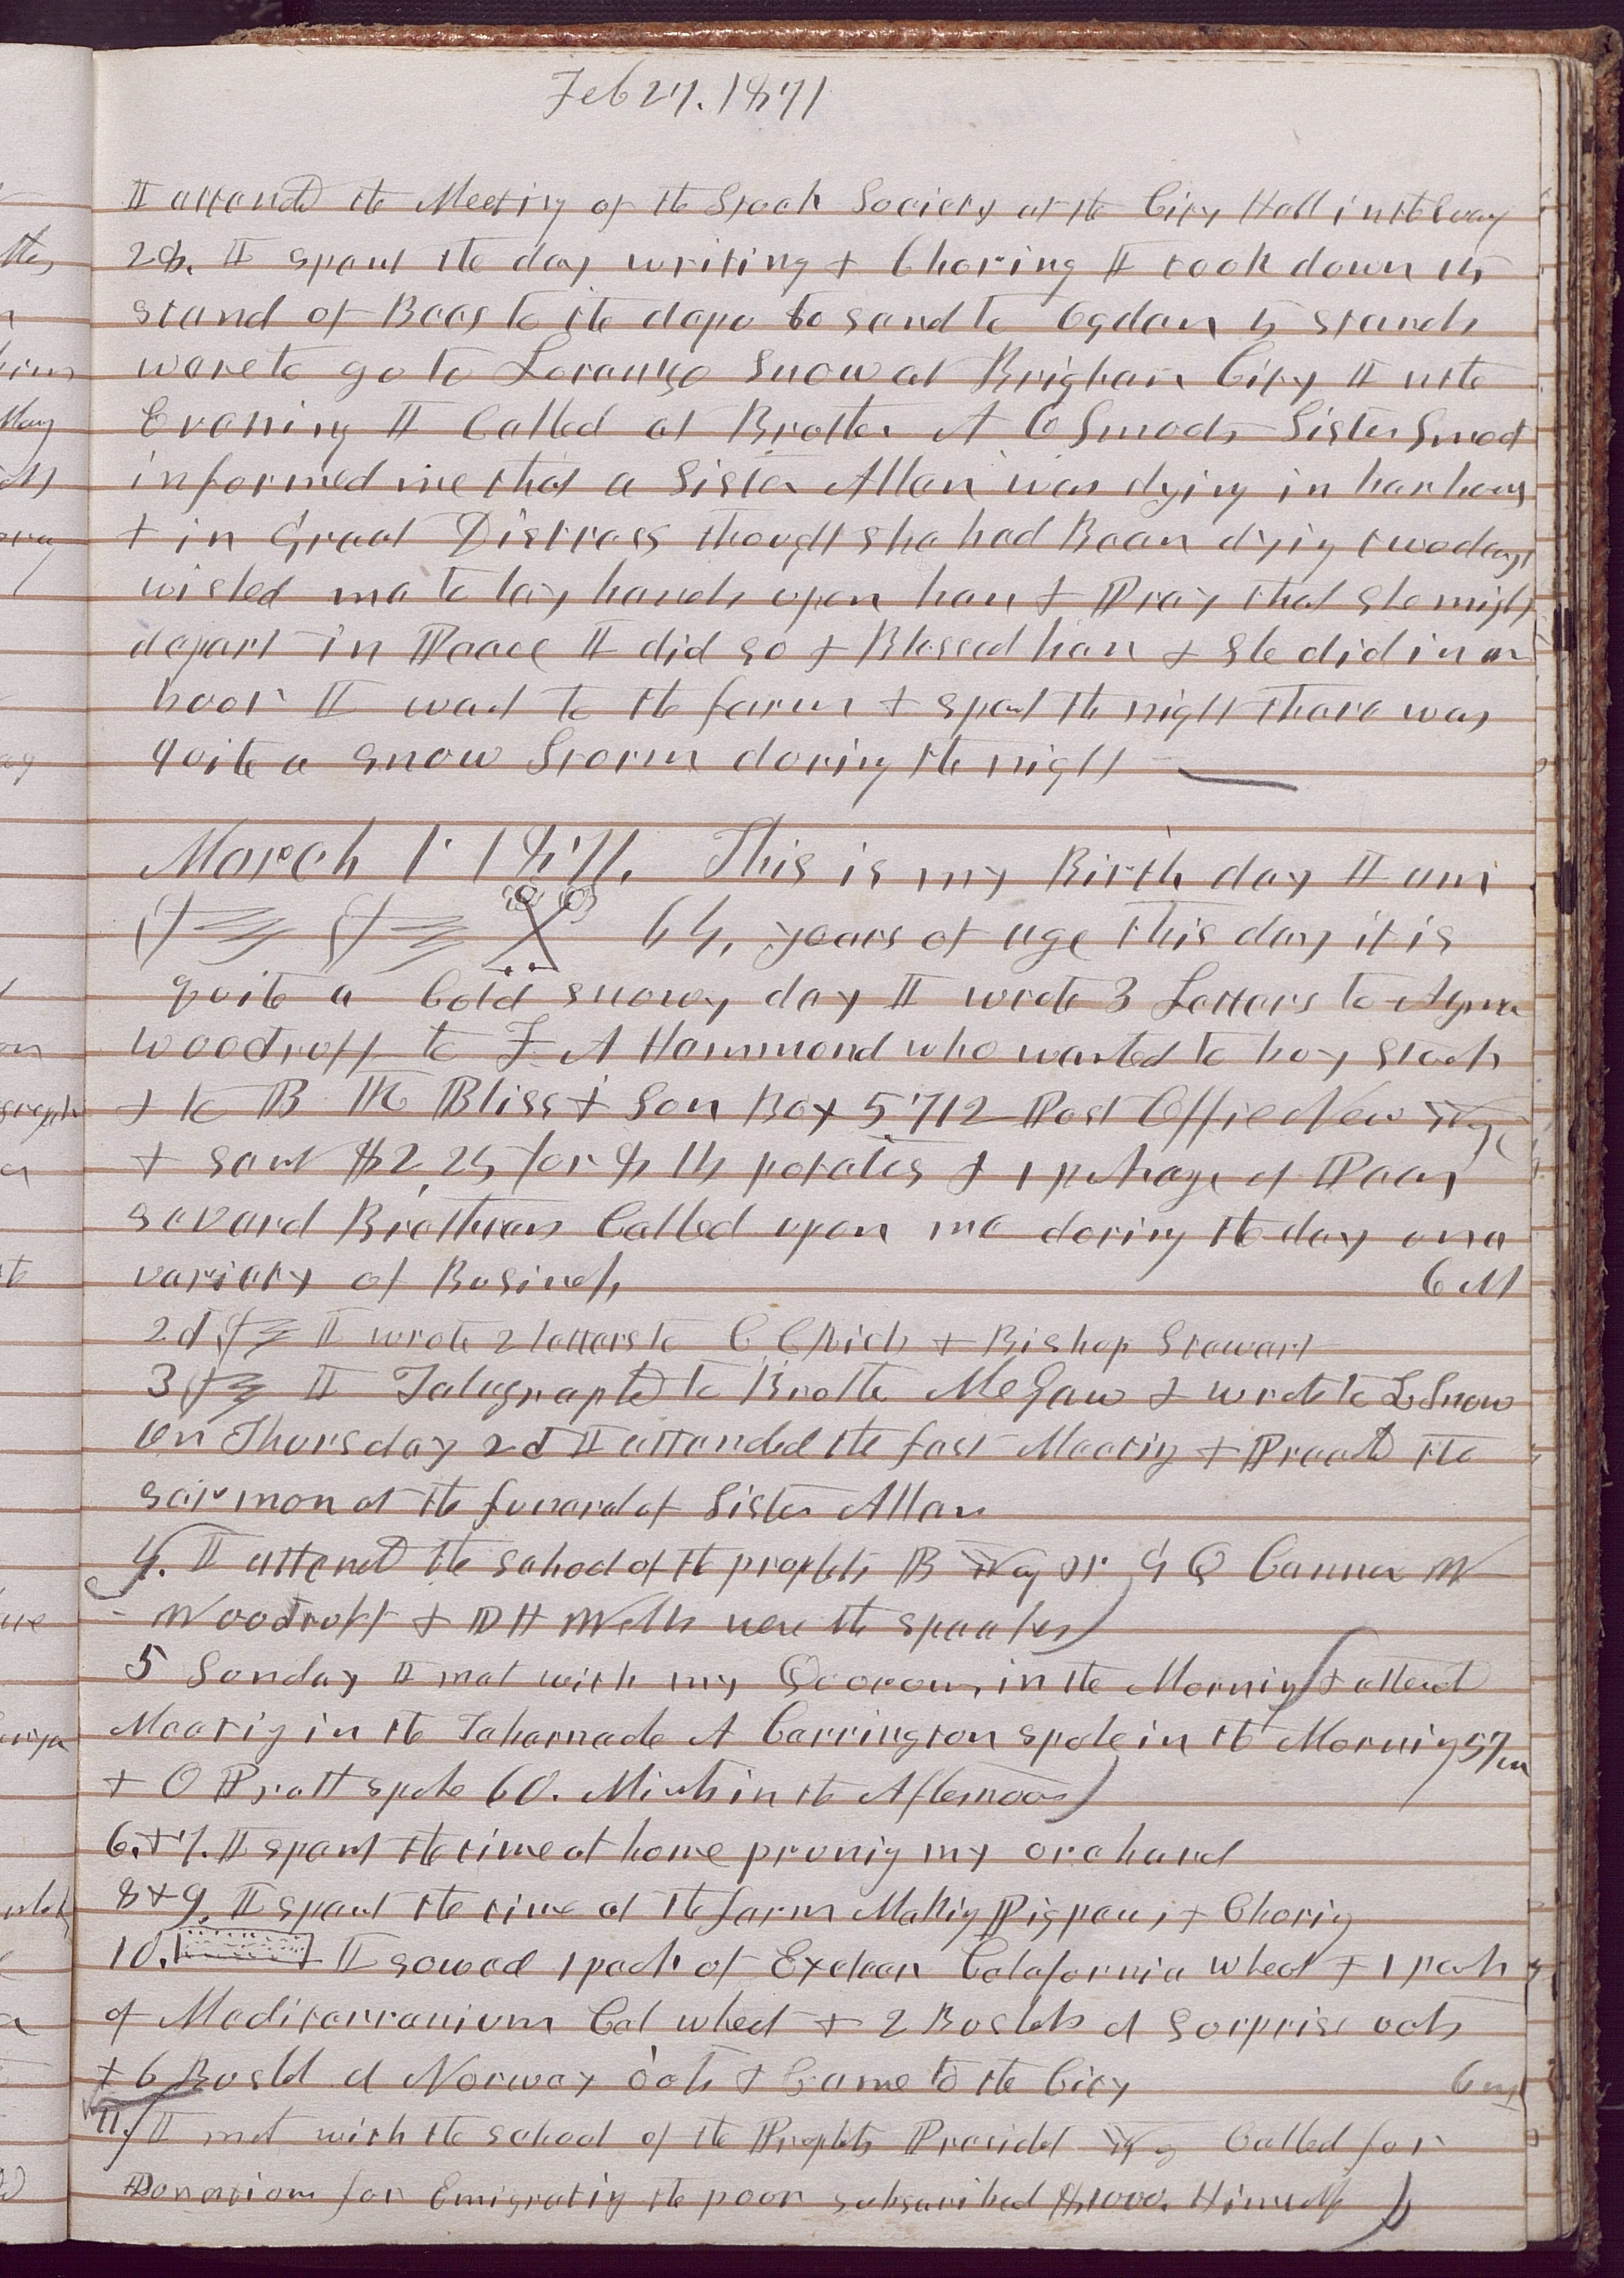 Feb 27. 1871
I attended the Meeting of the Stock Society at the City Hall in the Eveng
28. I spent the day writing & Choring I took down 15
stand of Bees to the depo to send to Ogden 5 stands
were to go to Lorenzo Snow at Brigham City I n the
Evening I Called at Brother A O Smoots Sister Smoot
informed me that a Sister Allen was dying in her house
& in Great Distress though she had Been dying two days
wished me to lay hands upon her & Pray that she might
depart in Peace I did so & Blessed her & she did in an
hour I went to the farm & spent the night there was
quite a snow Storm during the night
March 1. 1871. This is my Birth day I am
64, years of age this day it is
quite a Cold snowy day I wrote 3 Letters to Azmon
Woodruff to F A Hammond who wanted to buy stock
& to B K Bliss & Son Box 5712 Post Office New York
& sent $2,25 for 8 lb potatoes & 1 package of Peas
several Brethren Called upon me during the day on a
variety of Business 6 M
2d I wrote 2 letters to C C Rich & Bishop Stewart
3 I Telegraphed to Brother McGaw & wrote to L Snow
On Thursday 2d I attended the fast Meeting & Preached the
sermon at the funeral of Sister Allen
4. I attended the school of the prophets B Yg Jr G Q Cannon W
Woodruff & D H Wells were the speakers
5 Sunday I met with my Quorum, in the Morning & attend
Meeting in the Tabernacle A Carrington spoke in the Morning 57 m
& O Pratt spoke 60. Minuts in the Afternoon
6. & 7. I spent the time at home pruning my orchard
8 & 9. I spent the time at the farm Making Pigpens, & Choring
10. I sowed 1 peck of Exclear Calafornia wheat & 1 peck
of Mediterranium Cal wheat & 2 Bushels of Surprise oats
& 6 Bushels of Norway oats & Came to the City 6 m
11. I met with the school of the Prophets President Yg Called for
Donations for Emigrating the poor subscribed $1000. Himself